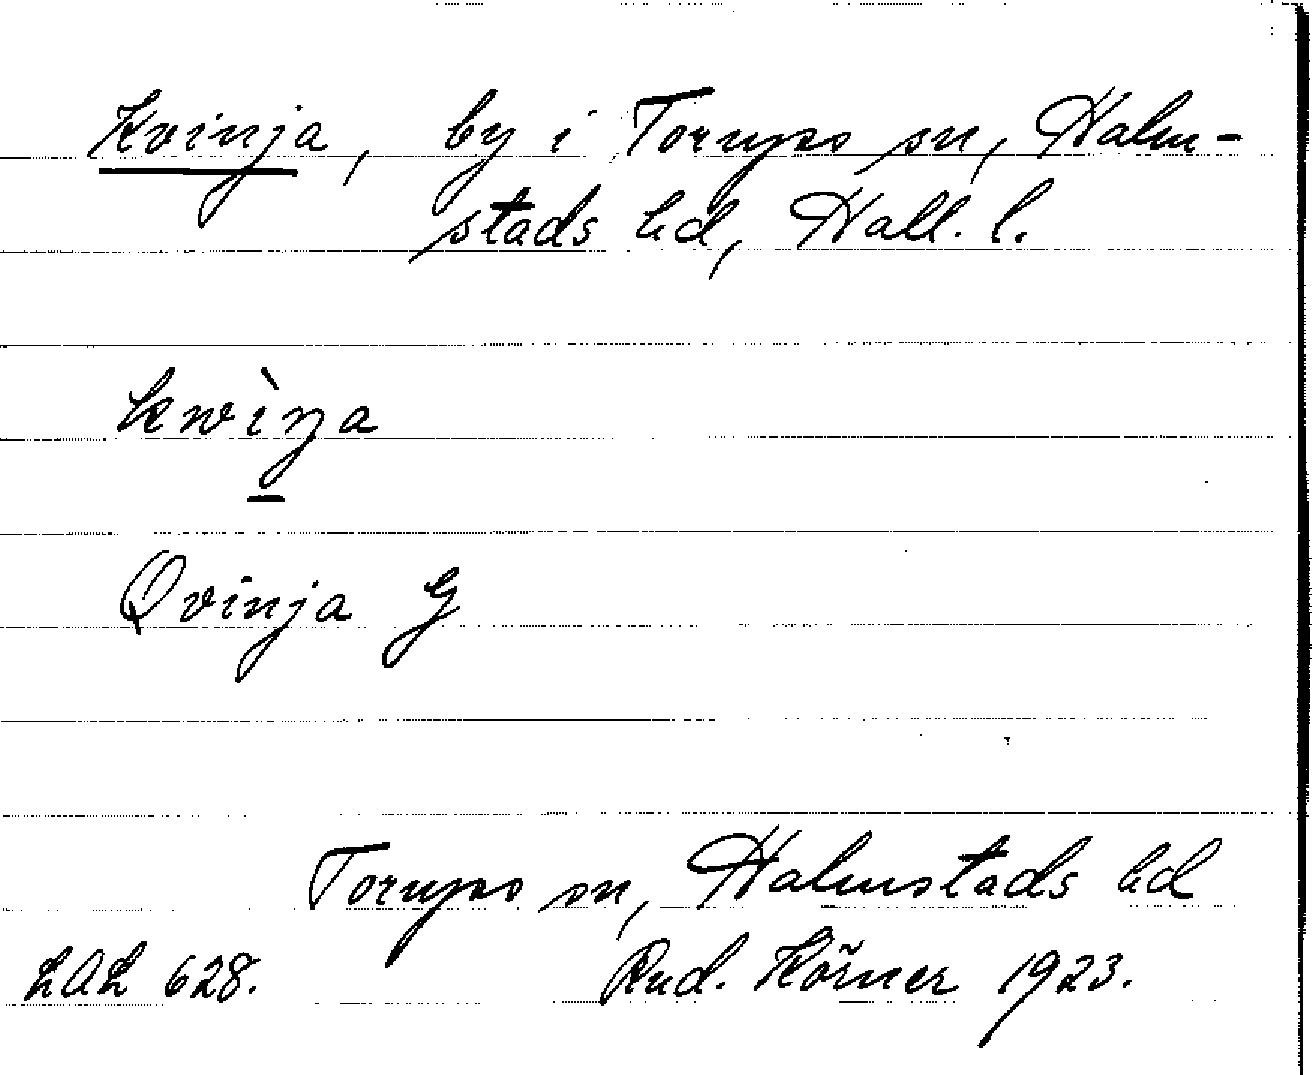 Kvinja, by i Torups sn, Halm-
stads hd, Hall. l.
kwìŋa
Qvinja G
Torups sn, Halmstads hd
LAL 628. Rud. Körner 1923.